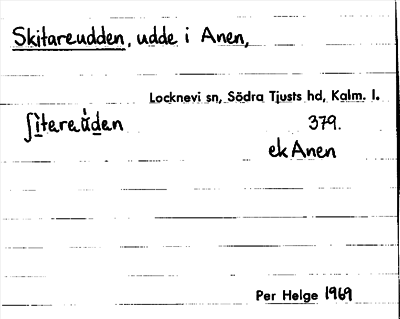 Skitareudden, udde i Anen,
Locknevi sn, Södra Tjusts hd, Kalm. l.
ʃìtareùden 379.
ek Anen
Per Helge 1969